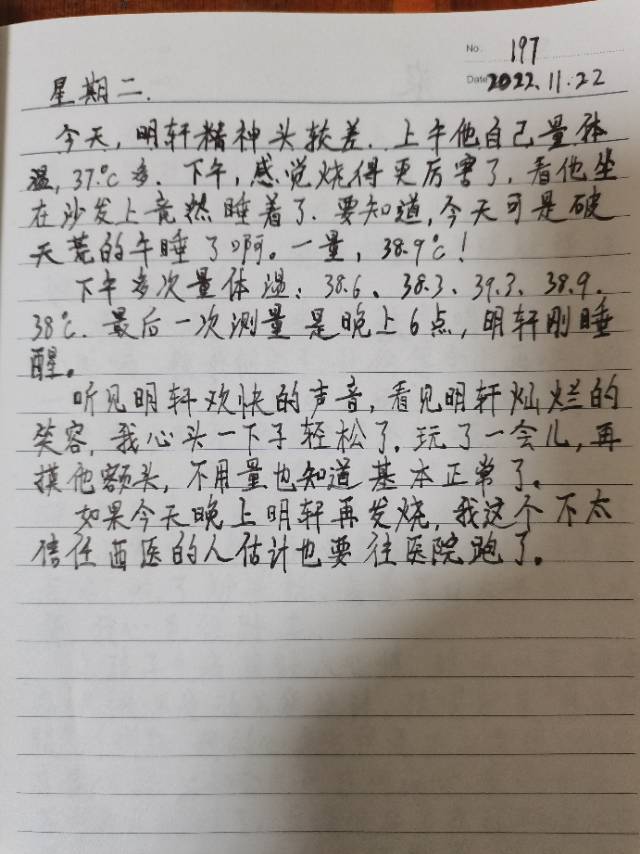 No. 197
Date 2022.11.22
星期二.
今天,明轩精神头较差.上午他自己量体
温,37℃多.下午,感觉烧得更厉害了,看他坐
在沙发上竟然睡着了.要知道,今天可是破
天荒的午睡了啊。一量,38.9℃!
下午多次量体温:38.6、38.3、39.3、38.9、
38℃.最后一次测量是晚上6点,明轩刚睡
醒。
听见明轩欢快的声音,看见明轩灿烂的
笑容,我心头一下子轻松了.玩了一会儿,再
摸他额头,不用量也知道基本正常了。
如果今天晚上明轩再发烧,我这个不太
信任西医的人估计也要往医院跑了。